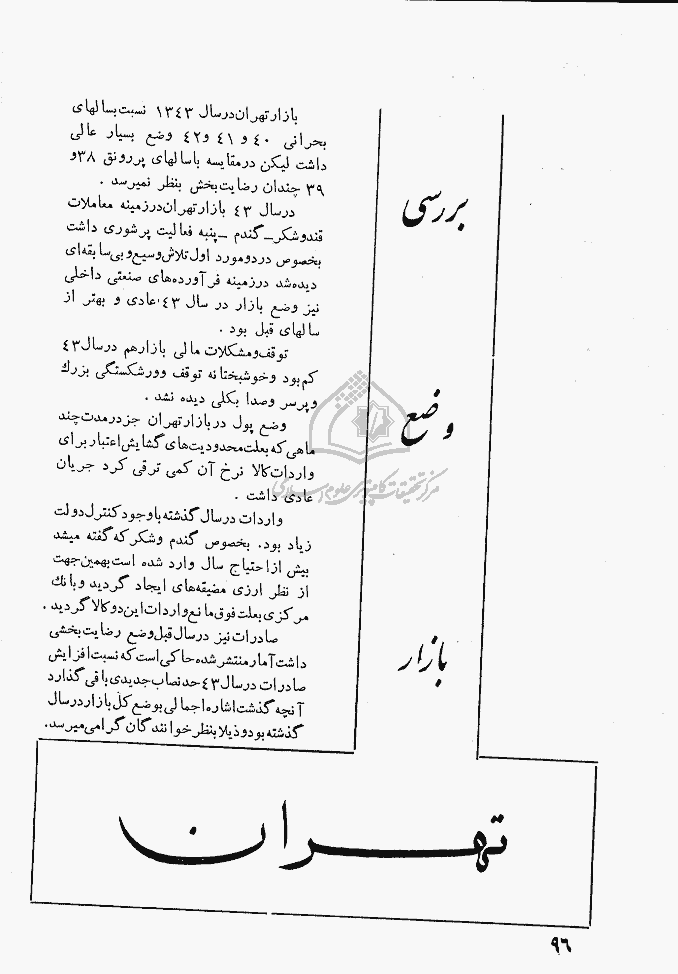 بررسی
وضع
بازار
تهران
بازار تهران در سال ۱۳٤۳ نسبت بسالهای
بحرانی ٤۰ و ٤۱ و ٤۲ وضع بسیار عالی
داشت لیکن در مقایسه با سالهای پر رونق ۳۸ و
۳۹ چندان رضایت بخش بنظر نمیرسد .
در سال ٤۳ بازار تهران در زمینه معاملات
قند و شکر ـ گندم ـ پنبه فعالیت پرشوری داشت
بخصوص در دو مورد اول تلاش وسیع و بی سابقه‌ای
دیده شد در زمینه فرآورده‌های صنعتی داخلی
نیز وضع بازار در سال ٤۳ عادی و بهتر از
سالهای قبل بود .
توقف و مشکلات مالی بازار هم در سال ٤۳
کم بود و خوشبختانه توقف و ورشکستگی بزرك
و پر سر و صدا بکلی دیده نشد .
وضع پول در بازار تهران جز در مدت چند
ماهی که بعلت محدودیت‌های گشایش اعتبار برای
واردات کالا نرخ آن کمی ترقی کرد جریان
عادی داشت .
واردات در سال گذشته با وجود کنترل دولت
زیاد بود. بخصوص گندم و شکر که گفته میشد
بیش از احتیاج سال وارد شده است بهمین جهت
از نظر ارزی مضیقه‌های ایجاد گردید و بانك
مرکزی بعلت فوق مانع واردات این دو کالا گردید .
صادرات نیز در سال قبل وضع رضایت بخشی
داشت آمار منتشر شده حاکی است که نسبت افزایش
صادرات در سال ٤۳ حد نصاب جدیدی باقی گذارد
آنچه گذشت اشاره اجمالی بوضع کل بازار در سال
گذشته بود و ذیلا بنظر خوانندگان گرامی میرسد.
مرکز تحقیقات کامپیوتری علوم اسلامی
۹٦